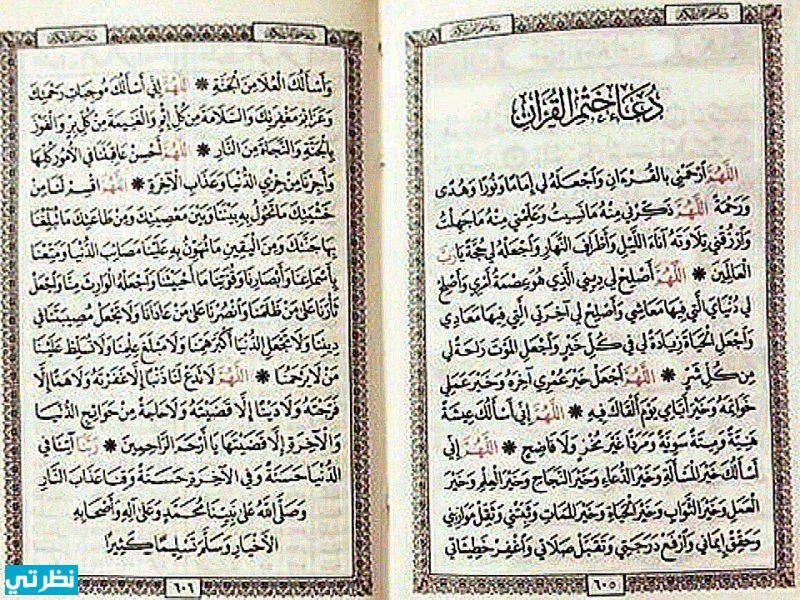 دُعَاءُ خَتْمِ الْقُرْآنِ
اللَّهُمَّ ارْحَمْنِي بِالْقُرْءَانِ وَاجْعَلْهُ لِي إِمَامًا وَنُورًا وَهُدًى
وَرَحْمَةً اللَّهُمَّ ذَكِّرْنِي مِنْهُ مَا نَسِيتُ وَعَلِّمْنِي مِنْهُ مَا جَهِلْتُ
وَارْزُقْنِي تِلَاوَتَهُ آنَاءَ اللَّيْلِ وَأَطْرَافَ النَّهَارِ وَاجْعَلْهُ لِي حُجَّةً يَا رَبَّ
الْعَالَمِينَ * اللَّهُمَّ أَصْلِحْ لِي دِينِي الَّذِي هُوَ عِصْمَةُ أَمْرِي وَأَصْلِحْ
لِي دُنْيَايَ الَّتِي فِيهَا مَعَاشِي وَأَصْلِحْ لِي آخِرَتِي الَّتِي فِيهَا مَعَادِي
وَاجْعَلِ الْحَيَاةَ زِيَادَةً لِي فِي كُلِّ خَيْرٍ وَاجْعَلِ الْمَوْتَ رَاحَةً لِي
مِنْ كُلِّ شَرٍّ * اللَّهُمَّ اجْعَلْ خَيْرَ عُمْرِي آخِرَهُ وَخَيْرَ عَمَلِي
خَوَاتِمَهُ وَخَيْرَ أَيَّامِي يَوْمَ أَلْقَاكَ فِيهِ * اللَّهُمَّ إِنِّي أَسْأَلُكَ عِيشَةً
هَنِيَّةً وَمِيتَةً سَوِيَّةً وَمَرَدًّا غَيْرَ مُخْزٍ وَلَا فَاضِحٍ * اللَّهُمَّ إِنِّي
أَسْأَلُكَ خَيْرَ الْمَسْأَلَةِ وَخَيْرَ الدُّعَاءِ وَخَيْرَ النَّجَاحِ وَخَيْرَ الْعِلْمِ وَخَيْرَ
الْعَمَلِ وَخَيْرَ الثَّوَابِ وَخَيْرَ الْحَيَاةِ وَخَيْرَ الْمَمَاتِ وَثَبِّتْنِي وَثَقِّلْ مَوَازِينِي
وَحَقِّقْ إِيمَانِي وَارْفَعْ دَرَجَتِي وَتَقَبَّلْ صَلَاتِي وَاغْفِرْ خَطِيئَاتِي
٦٠٥
وَأَسْأَلُكَ الْعُلَا مِنَ الْجَنَّةِ * اللَّهُمَّ إِنِّي أَسْأَلُكَ مُوجِبَاتِ رَحْمَتِكَ
وَعَزَائِمَ مَغْفِرَتِكَ وَالسَّلَامَةَ مِنْ كُلِّ إِثْمٍ وَالْغَنِيمَةَ مِنْ كُلِّ بِرٍّ وَالْفَوْزَ
بِالْجَنَّةِ وَالنَّجَاةَ مِنَ النَّارِ * اللَّهُمَّ أَحْسِنْ عَاقِبَتَنَا فِي الْأُمُورِ كُلِّهَا
وَأَجِرْنَا مِنْ خِزْيِ الدُّنْيَا وَعَذَابِ الْآخِرَةِ * اللَّهُمَّ اقْسِمْ لَنَا مِنْ
خَشْيَتِكَ مَا تَحُولُ بِهِ بَيْنَنَا وَبَيْنَ مَعْصِيَتِكَ وَمِنْ طَاعَتِكَ مَا تُبَلِّغُنَا
بِهَا جَنَّتَكَ وَمِنَ الْيَقِينِ مَا تُهَوِّنُ بِهِ عَلَيْنَا مَصَائِبَ الدُّنْيَا وَمَتِّعْنَا
بِأَسْمَاعِنَا وَأَبْصَارِنَا وَقُوَّتِنَا مَا أَحْيَيْتَنَا وَاجْعَلْهُ الْوَارِثَ مِنَّا وَاجْعَلْ
ثَأْرَنَا عَلَى مَنْ ظَلَمَنَا وَانْصُرْنَا عَلَى مَنْ عَادَانَا وَلَا تَجْعَلْ مُصِيبَتَنَا فِي
دِينِنَا وَلَا تَجْعَلِ الدُّنْيَا أَكْبَرَ هَمِّنَا وَلَا مَبْلَغَ عِلْمِنَا وَلَا تُسَلِّطْ عَلَيْنَا
مَنْ لَا يَرْحَمُنَا * اللَّهُمَّ لَا تَدَعْ لَنَا ذَنْبًا إِلَّا غَفَرْتَهُ وَلَا هَمًّا إِلَّا
فَرَّجْتَهُ وَلَا دَيْنًا إِلَّا قَضَيْتَهُ وَلَا حَاجَةً مِنْ حَوَائِجِ الدُّنْيَا
وَالْآخِرَةِ إِلَّا قَضَيْتَهَا يَا أَرْحَمَ الرَّاحِمِينَ * رَبَّنَا آتِنَا فِي
الدُّنْيَا حَسَنَةً وَفِي الْآخِرَةِ حَسَنَةً وَقِنَا عَذَابَ النَّارِ
وَصَلَّى اللَّهُ عَلَى نَبِيِّنَا مُحَمَّدٍ وَعَلَى آلِهِ وَأَصْحَابِهِ
الْأَخْيَارِ وَسَلَّمَ تَسْلِيمًا كَثِيرًا
٦٠٦
نظرتي